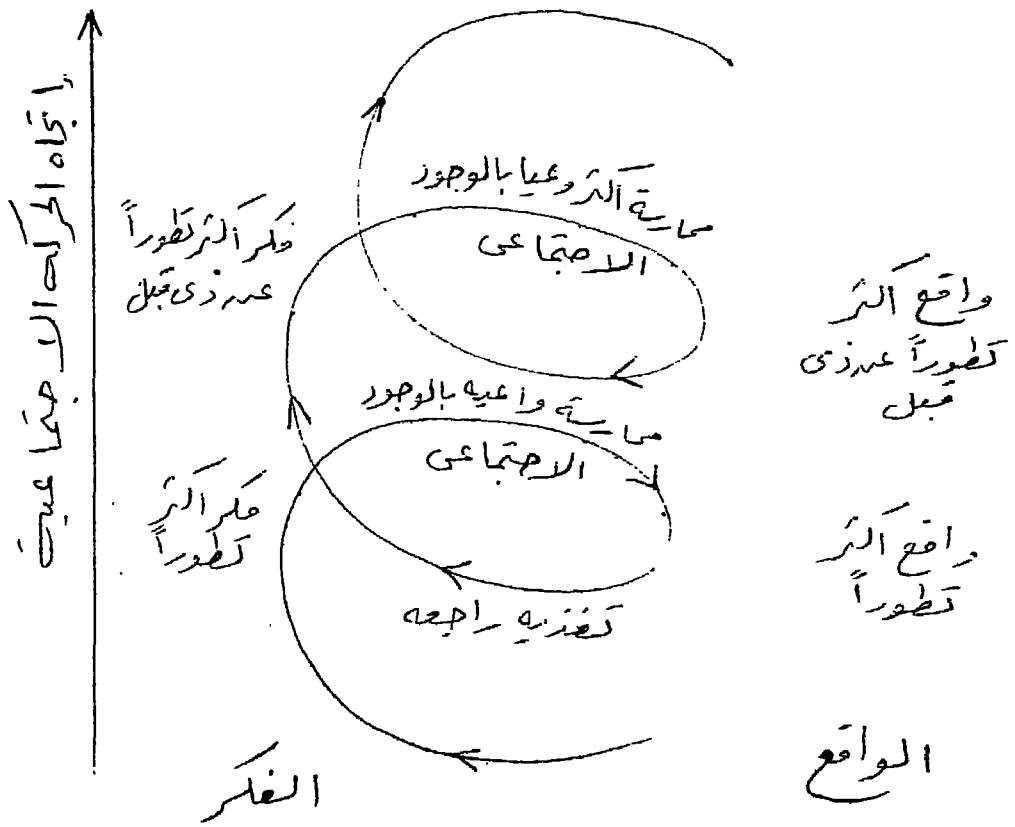 اتجاه الحركه الاجتماعية
ممارسة أكثر وعيا بالوجود
الاجتماعى
فكر أكثر تطوراً
عن ذى قبل
واقع أكثر
تطوراً عن ذى
قبل
ممارسة واعيه بالوجود
الاجتماعى
فكر اكثر
تطوراً
واقع اكثر
تطوراً
تغذيه راجعه
الواقع
الفكر